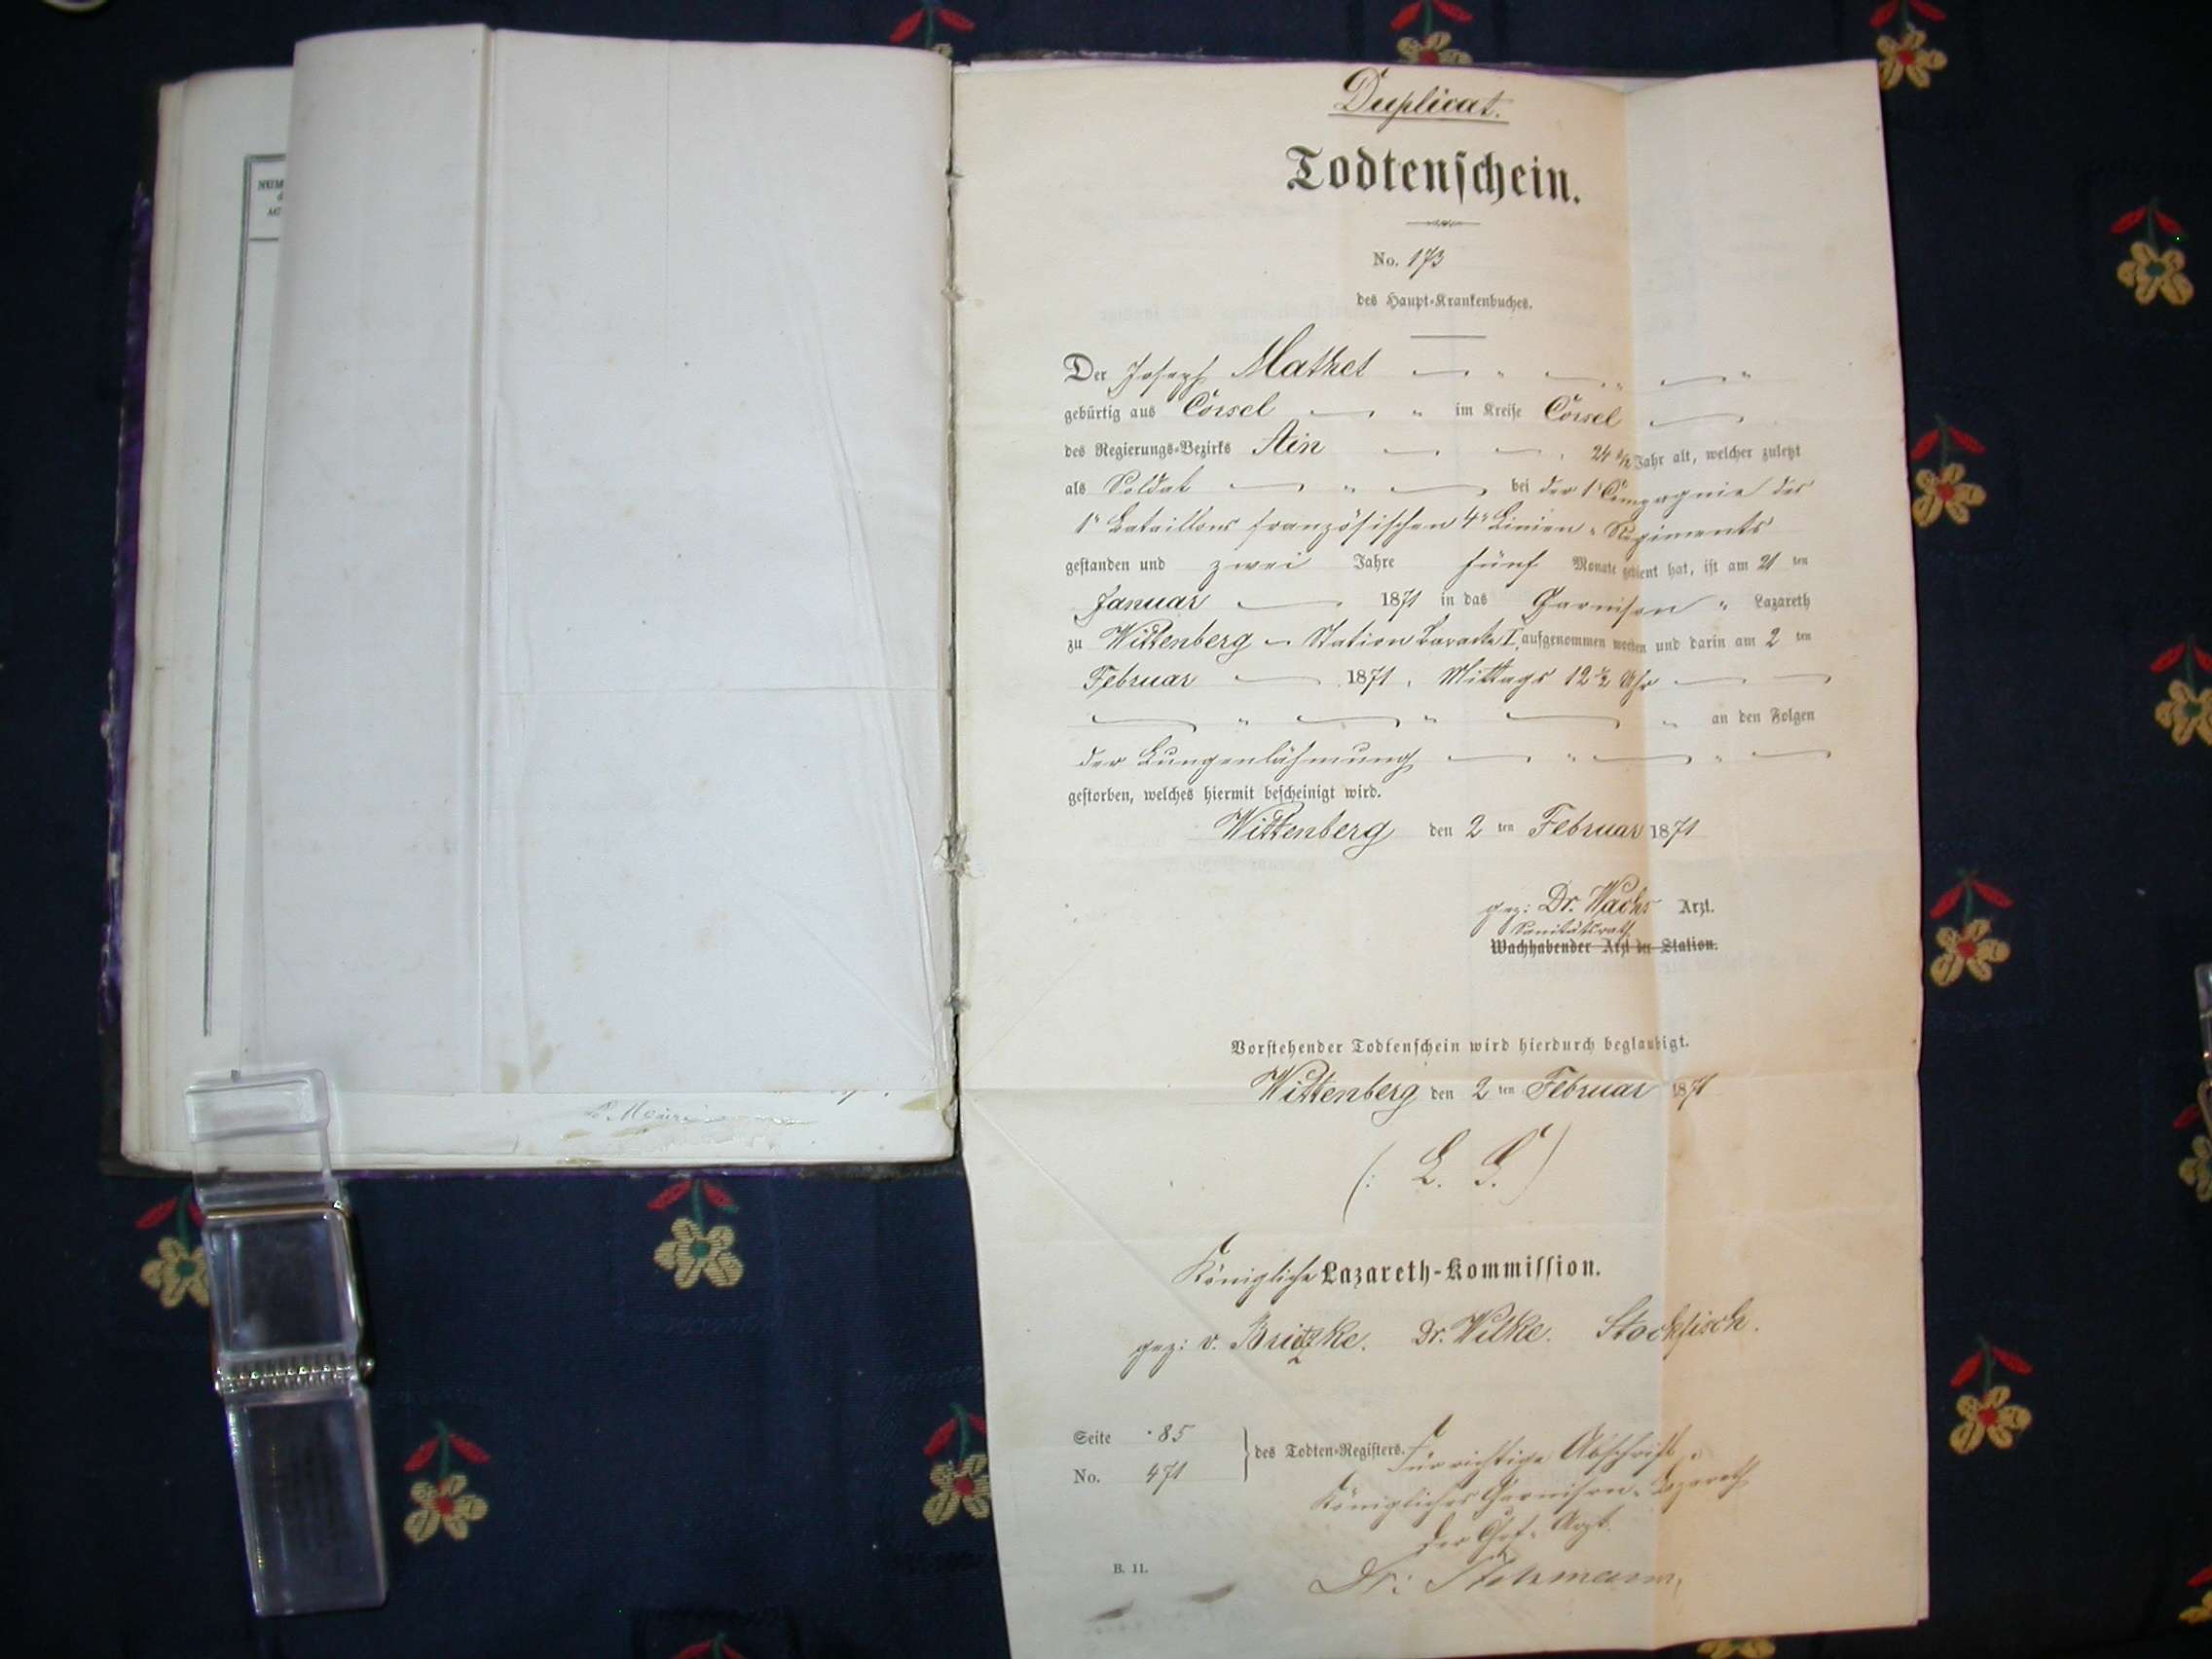 NUM
AC
Duplicat.
Todtenschein.
No. 173
des Haupt-Krankenbuches.
Der Joseph Mathet
gebürtig aus Corsel im Kreise Corsel
des Regierungs-Bezirks Ain 24 Jahr alt, welcher zuletzt
als Soldat bei der 1' Compagnie des
1" Bataillons französischen 4" Linien-Regiments
gestanden und zwei Jahre fünf Monate gedient hat, ist am 21 ten
Januar 1871 in das Garnison Lazareth
zu Wittenberg - Station Baracke I, aufgenommen worden und darin am 2 ten
Februar 1871, Mittags 12 ½ Uhr
an den Folgen
der Lungenlähmung
gestorben, welches hiermit bescheinigt wird.
Wittenberg den 2 ten Februar 1871
gez: Dr. Wachs Arzt.
Sanitätsrath
Wachhabender Arzt der Station.
Vorstehender Todtenschein wird hierdurch beglaubigt.
Wittenberg den 2 ten Februar 1871
(: L. S. )
Königliche Lazareth-Kommission.
gez: v. Brietzke. Dr. Wilke. Stockfisch.
Seite 85
No. 471
des Todten-Registers.
Für richtige Abschrift
Königliches Garnison-Lazareth
Der Chef-Arzt.
Dr:
B. 11.